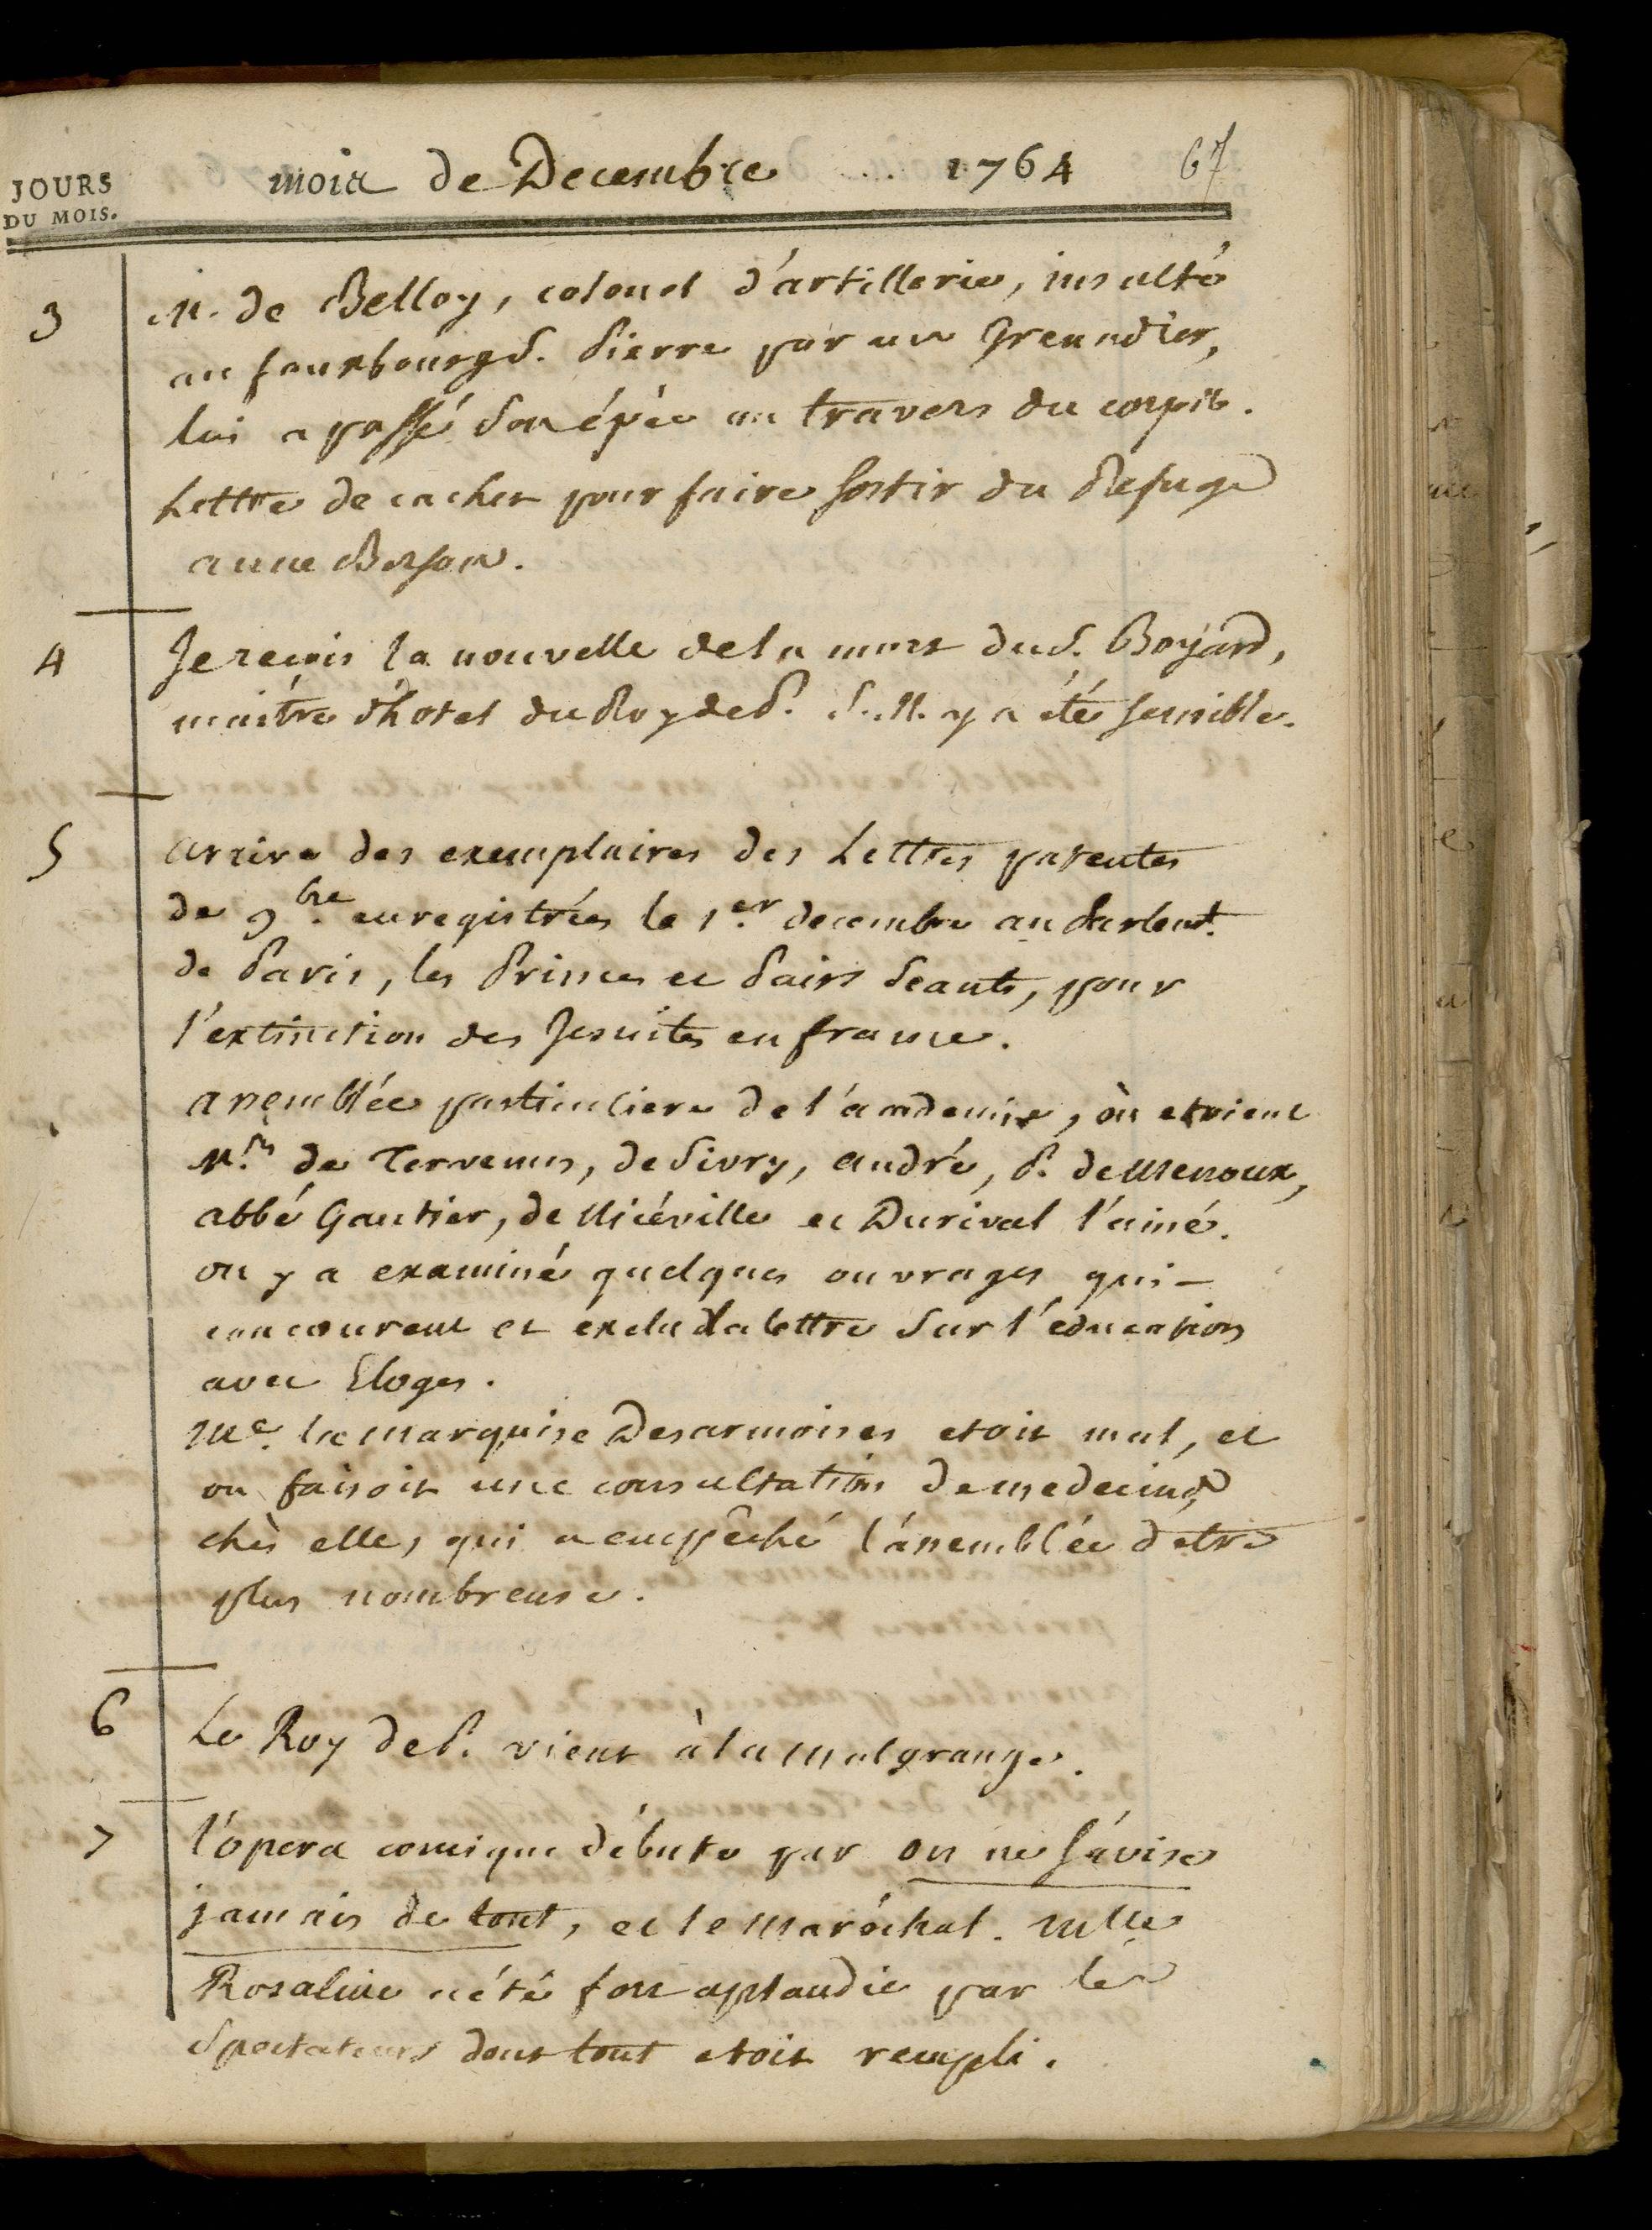 JOURS
DU MOIS.
mois de Decembre ... 1764
67
3
M. de Belloy, colonel d'artillerie, insulté
au fauxbourg S. Pierre par un Grenadier,
lui a passé son épée au travers du corps.
Lettre de cachet pour faire sortir du Refuge
anne
4
Je reçois la nouvelle de la mort du S. Boyard,
maitre d'hotel du Roy de P. S. M. y a été sensible.
5
arrive des exemplaires des Lettres patentes
de 9bre enregistrées le 1er decembre au Parlemt.
de Paris, les Princes et Pairs séants, pour
l'extinction des Jesuites en france.
assemblée particuliere de l'academie, où etoient
Mrs de Tervenus, de Sivry, André, P. de Menoux,
abbé Gautier, de Niéville et Durival l'ainé.
on y a examiné quelques ouvrages qui
concourent et exclu la lettre sur l'éducation
avec Eloges.
Me. la Marquise Desarmoises etoit mal, et
on faisoit une consultation de medecins
chès elle, qui a empêché l'assemblée d'etre
plus nombreuse.
6
Le Roy de P. vient à la Malgrange.
7
l'opera comique débute par on ne s'avise
jamais de tout, et le Maréchal. Mlle
Rosaline a été fort aplaudie par les
Spectateurs dont tout etoit rempli.